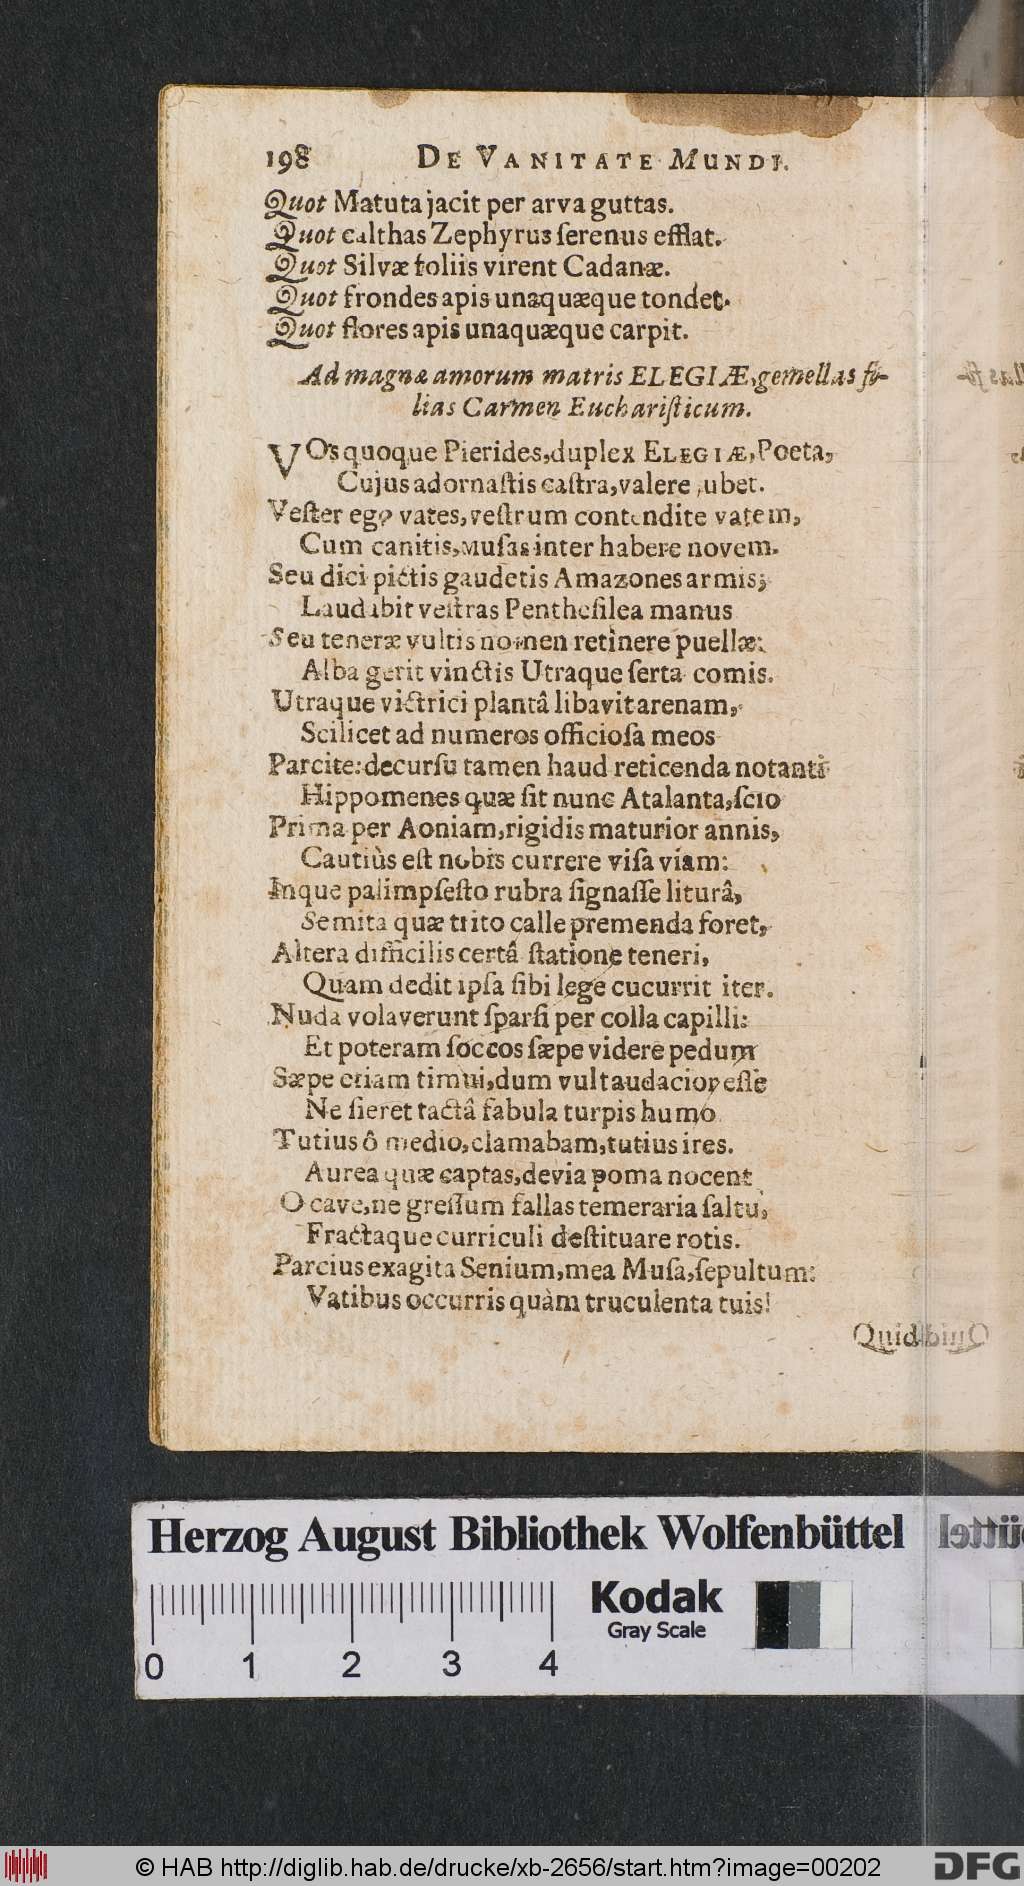 198 DE VANITATE MUNDI.
Quot Matuta jacit per arva guttas.
Quot calthas Zephyrus ſerenus efflat.
Quot Silvæ foliis virent Cadanæ.
Quot frondes apis unaquæque tondet.
Quot flores apis unaquæque carpit.
Ad magnæ amorum matris ELEGIÆ, gemellas fi-
lias Carmen Euchariſticum.
VOs quoque Pierides, duplex ELEGIÆ, Poeta,
Cujus adornaſtis caſtra, valere jubet.
Veſter ego vates, veſtrum contendite vatem,
Cum canitis, Muſas inter habere novem.
Seu dici pictis gaudetis Amazones armis;
Laudabit veſtras Pentheſilea manus
Seu teneræ vultis nomen retinere puellæ:
Alba gerit vinctis Utraque ſerta comis.
Utraque victrici plantâ libavit arenam,
Scilicet ad numeros officioſa meos
Parcite: decurſu tamen haud reticenda notanti
Hippomenes quæ ſit nunc Atalanta, ſcio
Prima per Aoniam, rigidis maturior annis,
Cautiùs eſt nobis currere viſa viam:
Inque palimpſeſto rubra ſignaſſe liturâ,
Semita quæ trito calle premenda foret,
Altera difficilis certâ ſtatione teneri,
Quam dedit ipſa ſibi lege cucurrit iter.
Nuda volaverunt ſparſi per colla capilli:
Et poteram ſoccos ſæpe videre pedum
Sæpe etiam timui, dum vult audacior eſſe
Ne fieret tactâ fabula turpis humo
Tutius ô medio, clamabam, tutius ires.
Aurea quæ captas, devia poma nocent
O cave, ne greſſum fallas temeraria ſaltu,
Fractaque curriculi deſtituare rotis.
Parcius exagita Senium, mea Muſa, ſepultum:
Vatibus occurris quàm truculenta tuis!
Quid
Herzog August Bibliothek Wolfenbüttel
Kodak
Gray Scale
0 1 2 3 4
© HAB http://diglib.hab.de/drucke/xb-2656/start.htm?image=00202
DFG